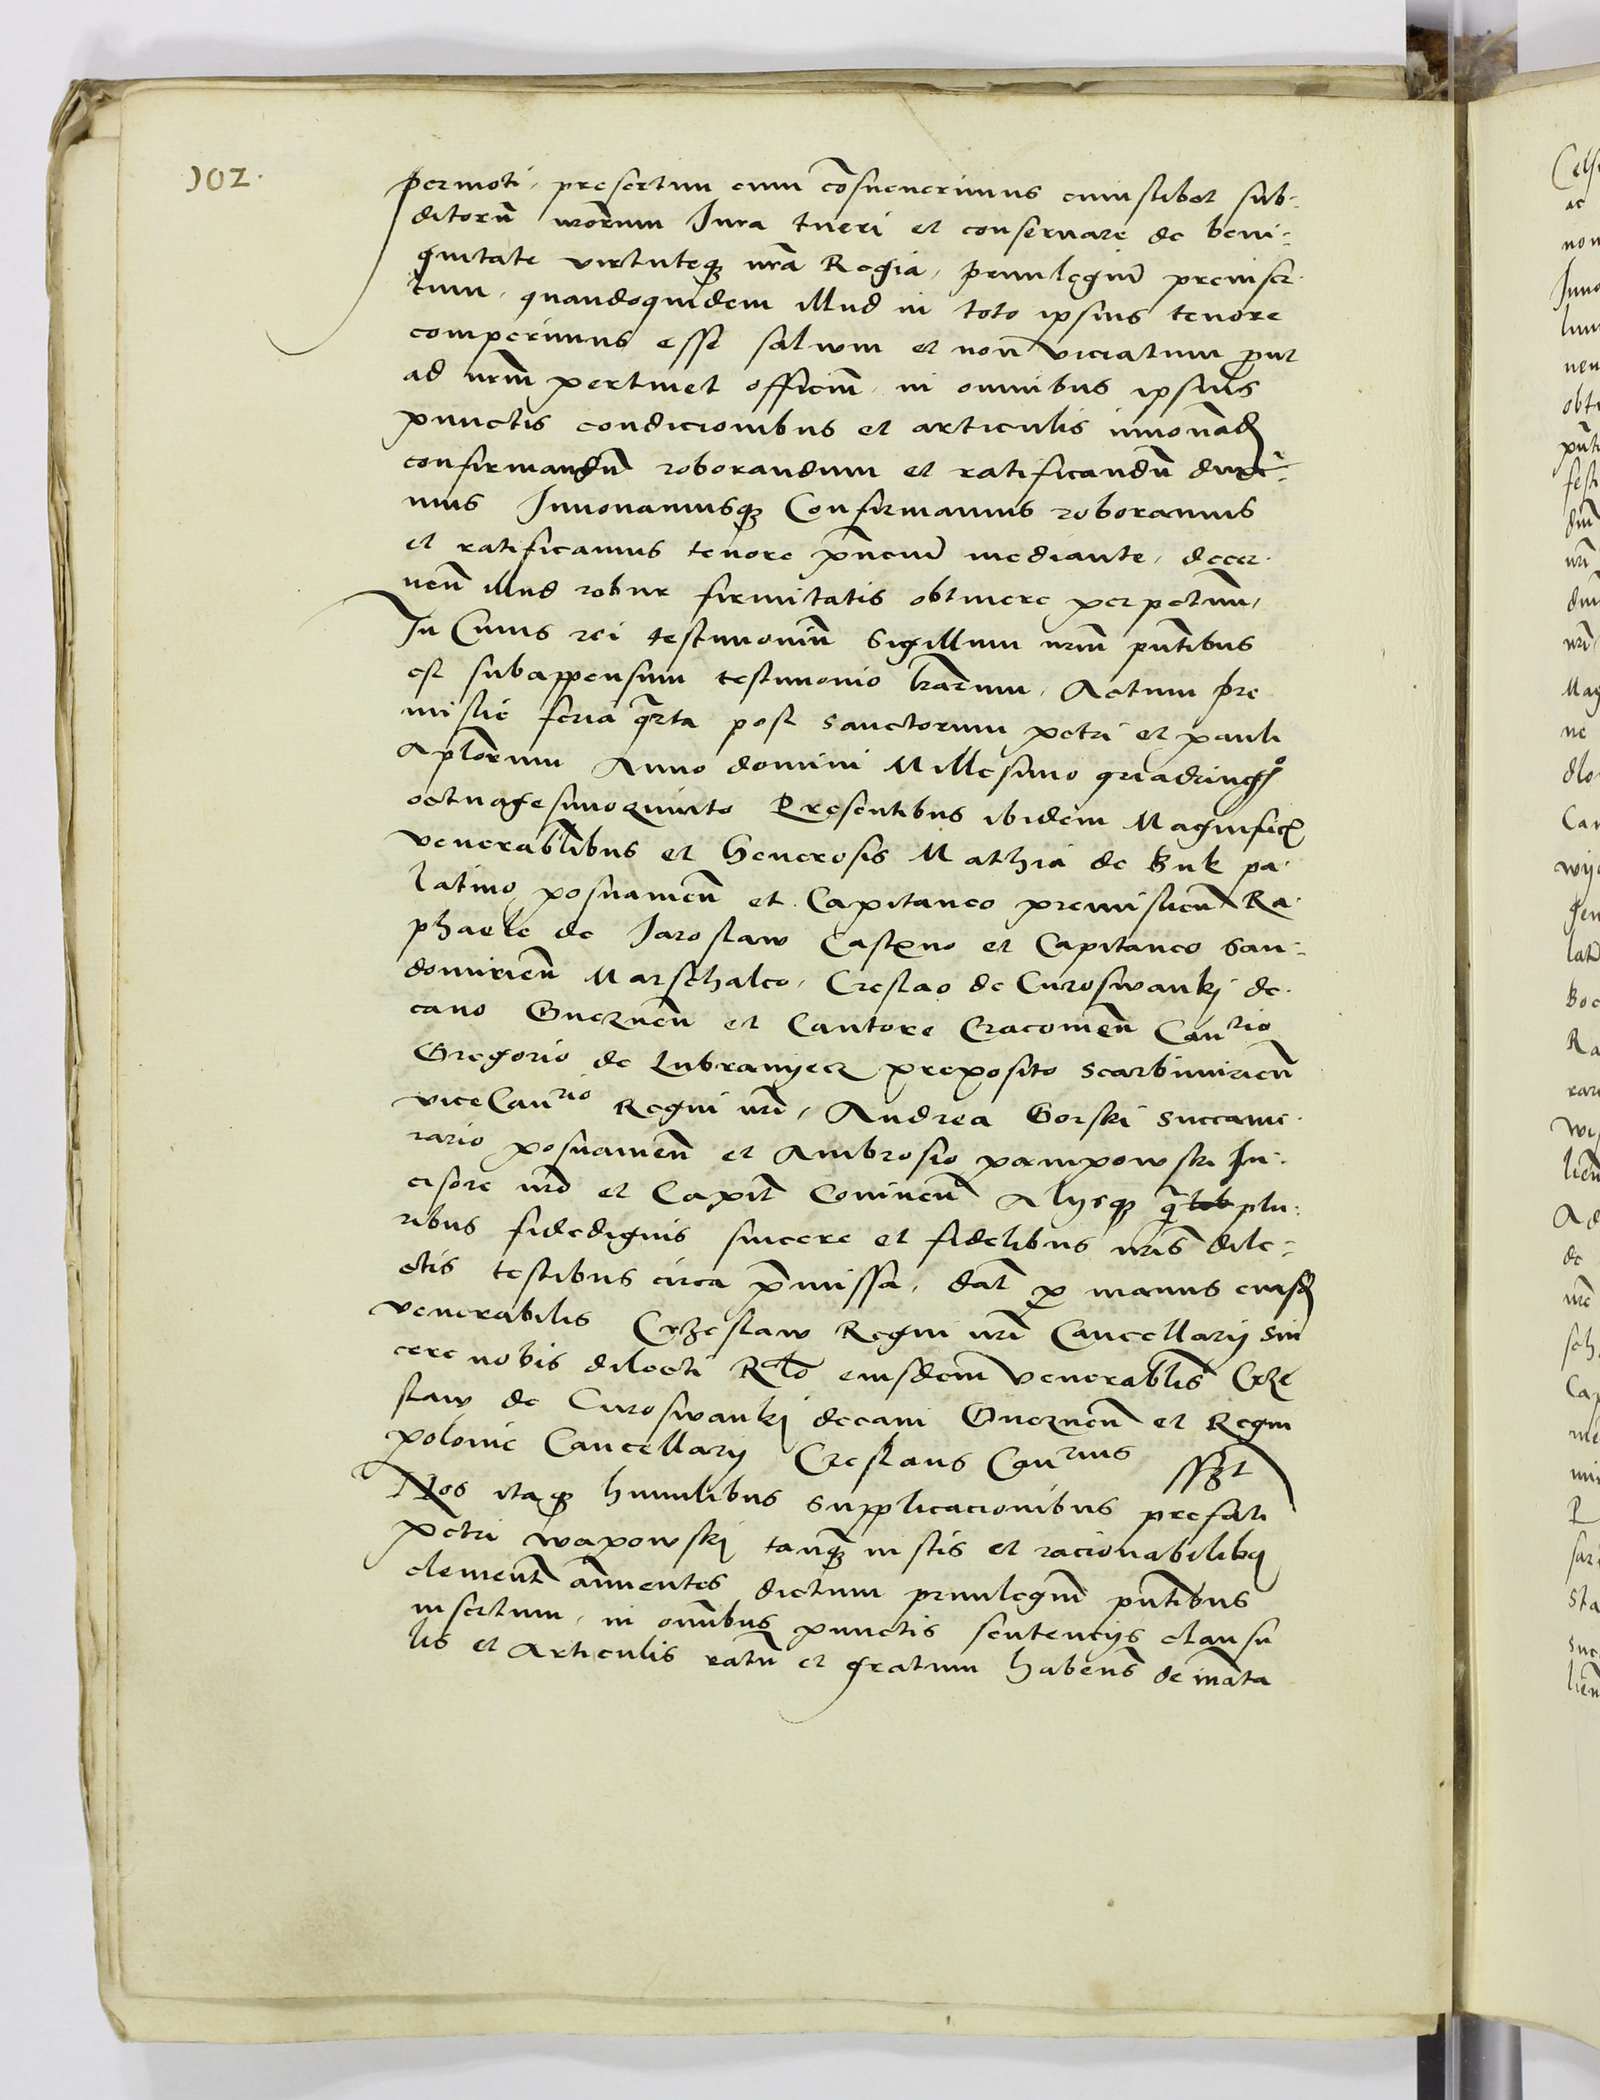 102.
permoti, presertim cum cōsueuerimus cuiuslibet sub-
ditorū nrōrum Iura tueri et conseruare de beni-
gnitate virtuteqʒ nrā Regia, priuilegiū preinser-
tum, quandoquidem illud in toto ipsius tenore
comperimus esse saluum et non viciatum prout
ad nrm̄ pertinet officiū, in omnibus ipsius
punctis condicionibus et articulis innouād
confirmandū roborandum et ratificandū duxi-
mus Innouamusqʒ Confirmamus roboramus
et ratificamus tenore pñciū mediante, decer-
nen̄ illud robur firmitatis obtinere perpetuū,
In Cuius rei testimoniū Sigillum nrm̄ pñtibus
est subappensum testimonio lrārum, Actum pre
mislie feria qrta post sanctorum petri et pauli
aplōrum Anno domini Millesimo quadringᵒ
octuagesimoquinto Presentibus ibidem Magnificꝭ
venerablibus et Generosis Mathia de Bnk pa-
latino posnanien̄ et Capitaneo premislien̄ Ra-
phaele de Iaroslaw Castno et Capitaneo San-
domirien̄ Marschalco, Creslao de Curoswankj de-
cano Gneznen̄ et Cantore Cracouien̄ Canrio
Gregorio de Lubranyecz preposito scarbimirien̄
viceCanrio Regni nrī, Andrea Gorski succame-
rario posnanien̄ et Ambrosio pampowski In-
cisore nrō et Capit Coninen̄ Alijsqʒ plu-
ribus fidedignis sincere et fidelibus nrīs dile-
ctis testibus circa pmissa, dat p manus eiusd
venerabilis Crzeslaw Regni nrī Cancellarij sin
cere nobis dilecti Rlo eiusdem venerablis Crze
slaw de Curoswankj decani Gneznen̄ et Regni
polonie Cancellarij Creslaus Canrius sszt
Nos itaqʒ humilibus supplicacionibus prefati
petri wapowskj tanqʒ iustis et racionabilibꝫ
clement annuentes dictum priuilegiū pñtibus
insertum, in omībus punctis sentencijs clausu
lis et Articulis ratū et gratum habens de innāta